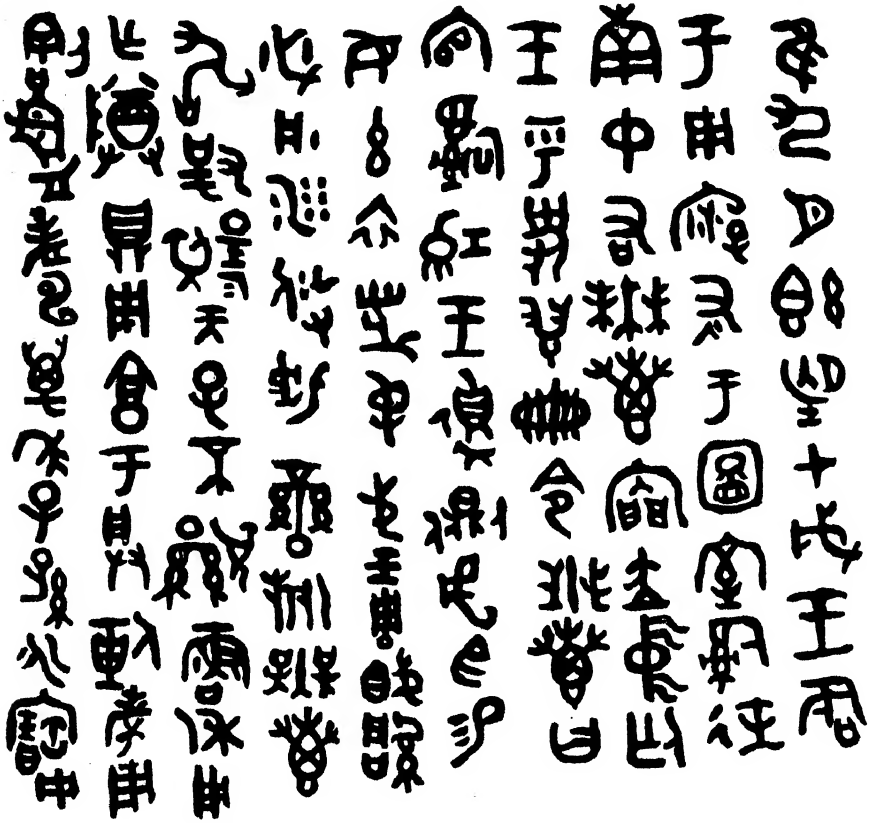 隹九月既望甲戌王各
于周廟灰于圖室司徒
南中右無叀內門立中廷
王乎史翏冊令無叀曰
官司紅王側虎臣易
女玄衣黹屯戈琱厚
必彤沙攸勒鑾旂無叀
敢對揚天子不顯魯休用
乍尊鼎用亯于朕剌考用
割眉壽萬年子孫永寶用